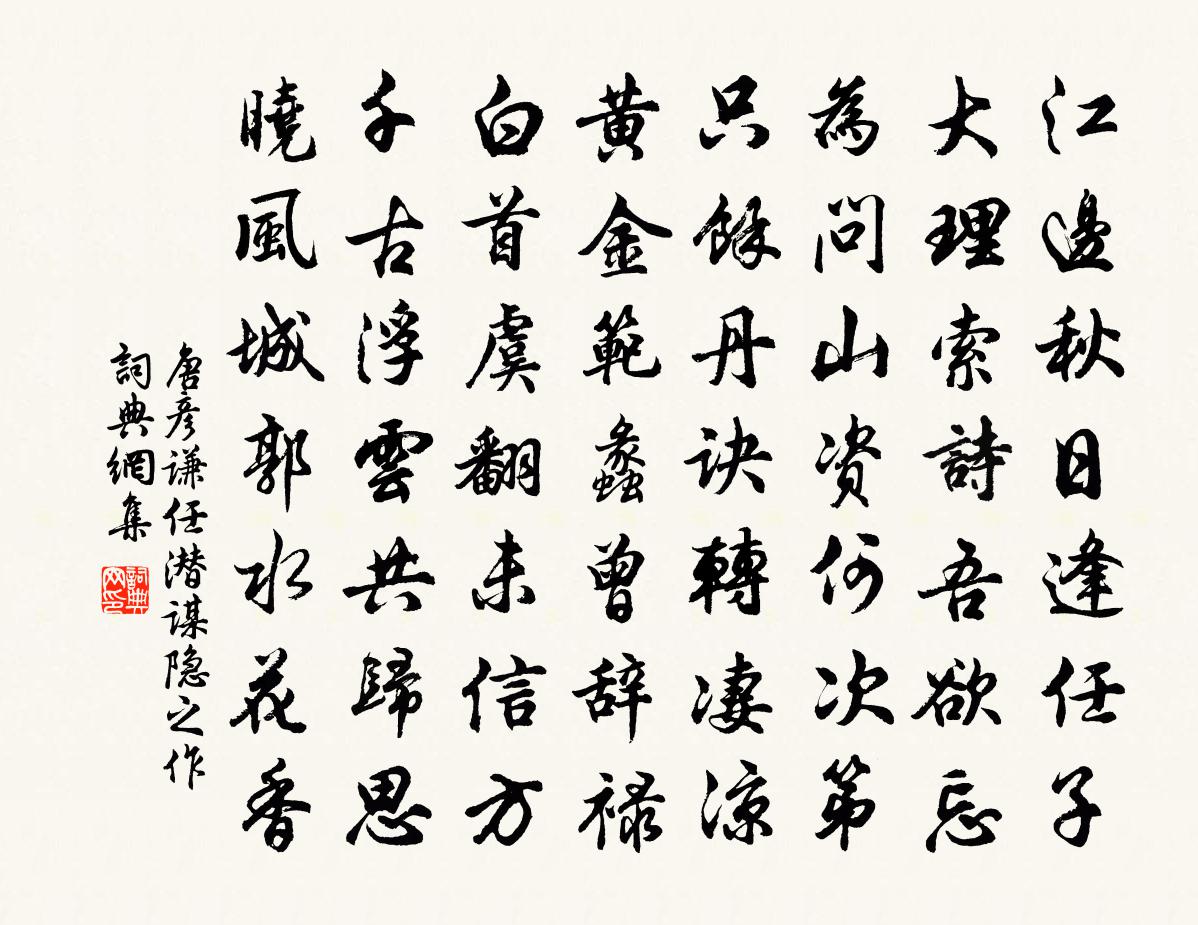 江邊秋日逢任子
大理索詩吾欲忘
為問山資何次第
只餘丹訣轉凄涼
黃金範蠡曾辞禄
白首虞翻未信方
千古浮雲共歸思
曉風城郭水花香
唐彦谦任潜谋隐之作
詞典網集
詞典網印